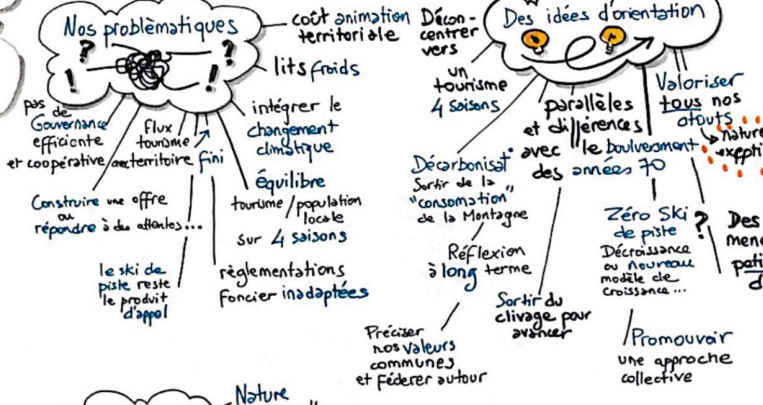 Nos problèmatiques
coût animation
territoriale
lits froids
intégrer le
changement
climatique
équilibre
tourisme / population
locale
sur 4 saisons
règlementations
Foncier inadaptées
Flux ↗
tourisme /
avec territoire fini
le ski de
piste reste
le produit
d'appel
pas de
Gouvernance
efficiente
et coopérative
Construire une offre
ou
répondre à des attentes...
Des idées d'orientation
Décon-
centrer
vers
un
tourisme
4 saisons
Décarbonisat°
Sortir de la
"consomation"
de la Montagne
Réflexion
à long terme
Préciser
nos valeurs
communes
et Féderer autour
parallèles
et différences
avec le boulversment
des années 70
Sortir du
clivage pour
avancer
Zéro Ski ?
de piste
Décroissance
ou nouveau
modèle de
croissance...
Promouvoir
une approche
collective
Valoriser
tous nos
atouts
↳ nature
Des
Nature